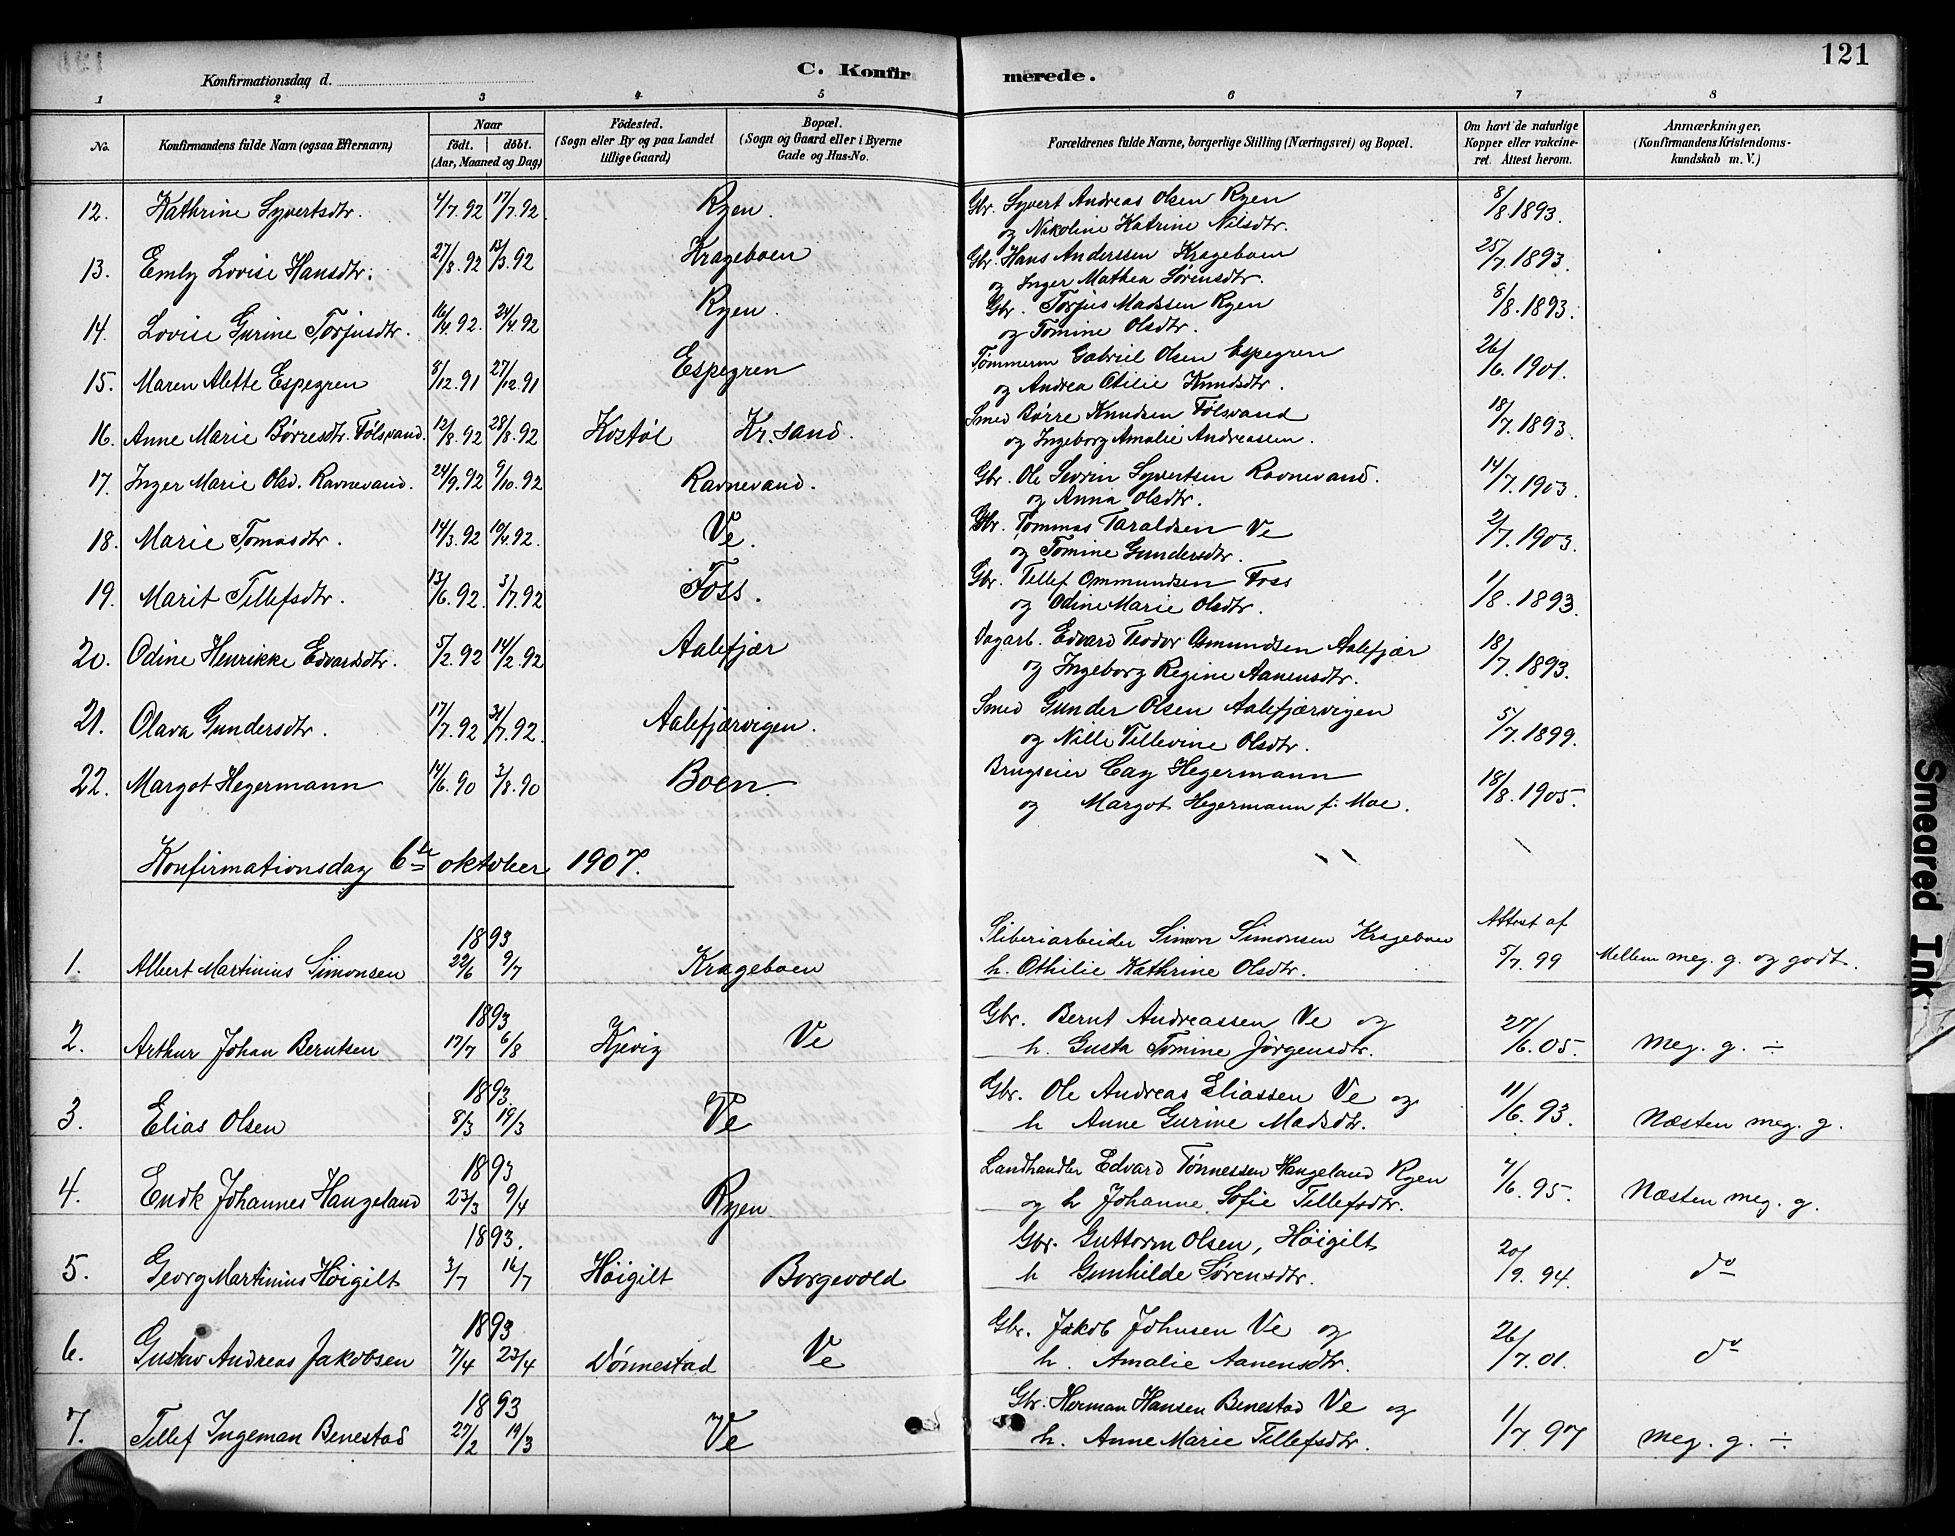 121
C. Konfirmerede.
Konfirmationsdag d.
1 2 3 4 5 6 7 8
No. Konfirmandens fulde Navn (ogsaa Efternavn) Naar födt. döbt. (Aar, Maaned og Dag) Födested. (Sogn eller By og paa Landet tillige Gaard) Bopæl. (Sogn og Gaard eller i Byerne Gade og Hus-No. Forældrenes fulde Navne, borgerlige Stilling (Næringsvei) og Bopæl. Om havt de naturlige Kopper eller vakcineret. Attest herom. Anmærkninger. (Konfirmandens Kristendomskundskab m. V.)
12. Kathrine Syvertsdtr. 4/7.92 17/7.92. Ryen. Gbr. Syvert Andreas Olsen Ryen 8/8.1893.
og Nikoline Katrine Nilsdtr.
13. Emly Lovise Hansdtr. 27/8.92 13/3.92 Krageboen Gbr. Hans Anderssen Krageboen 25/7.1893.
og Inger Mathea Sørensdtr.
14. Lovise Gurine Torjusdtr. 16/4.92. 24/4.92 Ryen. Gbr. Torjus Madssen Ryen 8/8.1893.
og Tomine Olsdtr.
15. Maren Alette Espegren 8/12.91 27/12.91 Espegren Tømmerm Gabriel Olsen Espegren 26/6.1901.
og Andrea Otilie Knudsdtr.
16. Anne Marie Børresdtr. Følsvand. 12/8.92 28/8.92 Kostøl Kr.sand. Smed Børre Knudsen Følsvand 18/7.1893.
og Ingeborg Amalie Andreassen.
17. Inger Marie Olsd. Ravnevand. 24/9.92 9/10.92 Ravnevand. Gbr. Ole Severin Syvertsen Ravnevand. 14/7.1903.
og Anna Olsdtr.
18. Marie Tomasdtr. 14/3.92 10/4.92. Ve. Gbr. Tommas Taraldsen Ve 2/7.1903.
og Tomine Gundersdtr.
19. Marit Tillefsdtr. 13/6.92. 3/7.92 Foss. Gbr. Tellef Ommundsen Foss 1/8.1893.
og Odine Marie Olsdtr.
20. Odine Henrikke Edvardsdtr. 5/2.92 14/2.92 Aalefjær Dagarb. Edvard Teodor Osmundsen Aalefjær 18/7.1893.
og Ingeborg Regine Aanensdtr.
21. Olava Gundersdtr. 17/7.92 31/7.92. Aalefjærvigen. Smed Gunder Olsen Aalefjærvigen 5/7.1899.
og Nille Tillevine Olsdtr.
22. Margot Hegermann 14/6.90 3/8.90 Boen. Brugseier Cay Hegermann 18/8.1905.
og Margot Hegermann f. Moe.
Konfirmationsdag 6te oktober 1907.
1893 Sliberiarbeider Simon Simonsen Krageboen Attest af
1. Albert Martinius Simonsen 22/6 9/7 Krageboen h. Othilie Kathrine Olsdtr. 5/7.99 Mellem meg. g. og godt.
1893 Gbr. Bernt Andreassen Ve og
2. Arthur Johan Berntsen 17/7 6/8 Kjevig Ve h. Gusta Tomine Jørgensdtr. 27/6.05. Meg. g. ÷
1893. Gbr. Ole Andreas Eliassen Ve og
3. Elias Olsen 8/3 19/3 Ve h Anne Gurine Madsdtr. 11/6.93. Næsten meg. g.
1893 Landhandler Edvard Tønnessen Haugeland Ryen
4. Endk Johannes Haugeland 23/3 9/4 Ryen og h Johanne Sofie Tillefsdtr. 4/6.95. Næsten meg. g.
1893. Gbr. Guttorm Olsen, Høigilt
5. Georg Martinius Høigilt 3/7 16/7 Høigilt Borgevold h Gunhilde Sørensdtr. 20/9.94. do
1893 Gbr. Jakob Johnsen Ve og
6. Gustav Andreas Jakobsen 7/4 23/4 Dønnestad Ve h. Amalie Aanensdtr. 26/7.01. do
1893 Gbr. Herman Hansen Benestad Ve og
7. Tillef Ingeman Benestad 27/2 19/3 Ve h. Anne Marie Tillefsdtr. 1/7.97 Meg. g. ÷
Smeared Ink